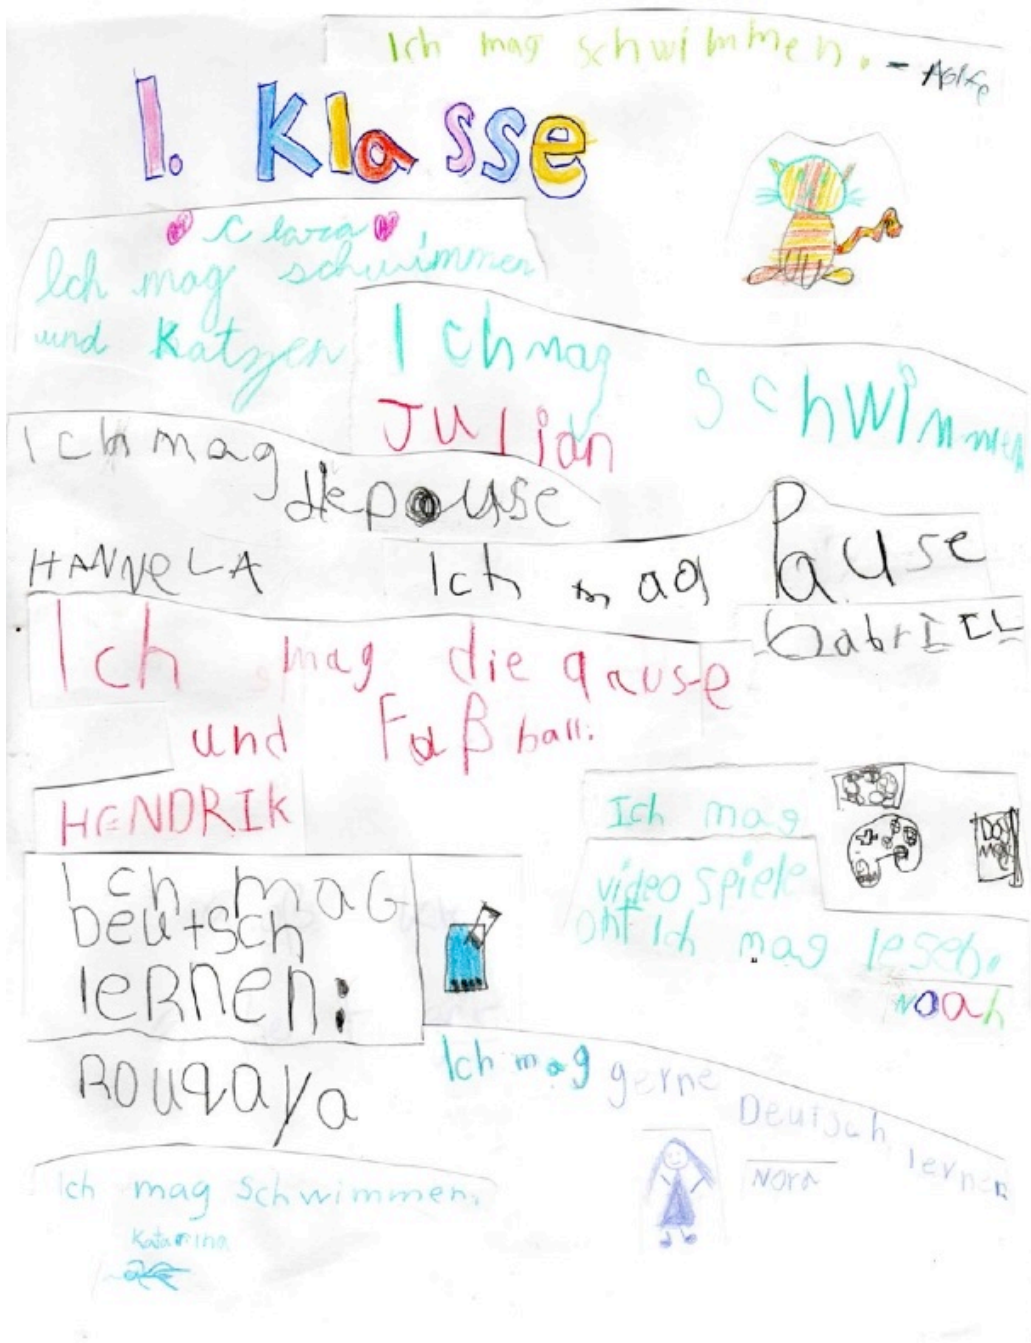 Ich mag schwimmen. -
1. Klasse
Clara
Ich mag schwimmen
und Katzen
Ich mag schwimmen
Julian
Ich mag
die pause
HANNELA
Ich mag Pause
GabrIEL
Ich mag die qause
und Fußball.
HENDRIK
Ich mag
video spiele
Ich mag lesen.
Noah
Ich maG
Deutsch
leRnen:
Rouqaya
Ich mag gerne Deutsch lernen
Nora
Ich mag Schwimmen.
Katarina